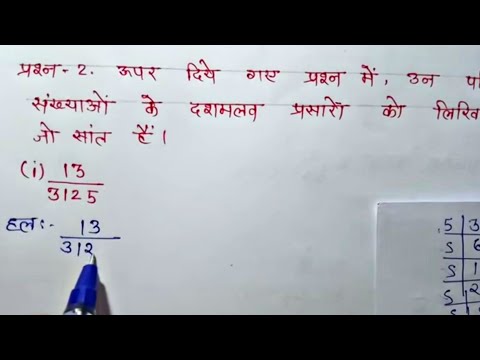 प्रश्न-2. ऊपर दिये गए प्रश्न में, उन
संख्याओं के दशमलव प्रसारों को
जो सांत हैं।
(i) 13
3125
हल:- 13
312
5|3
5|6
5|1
5|2